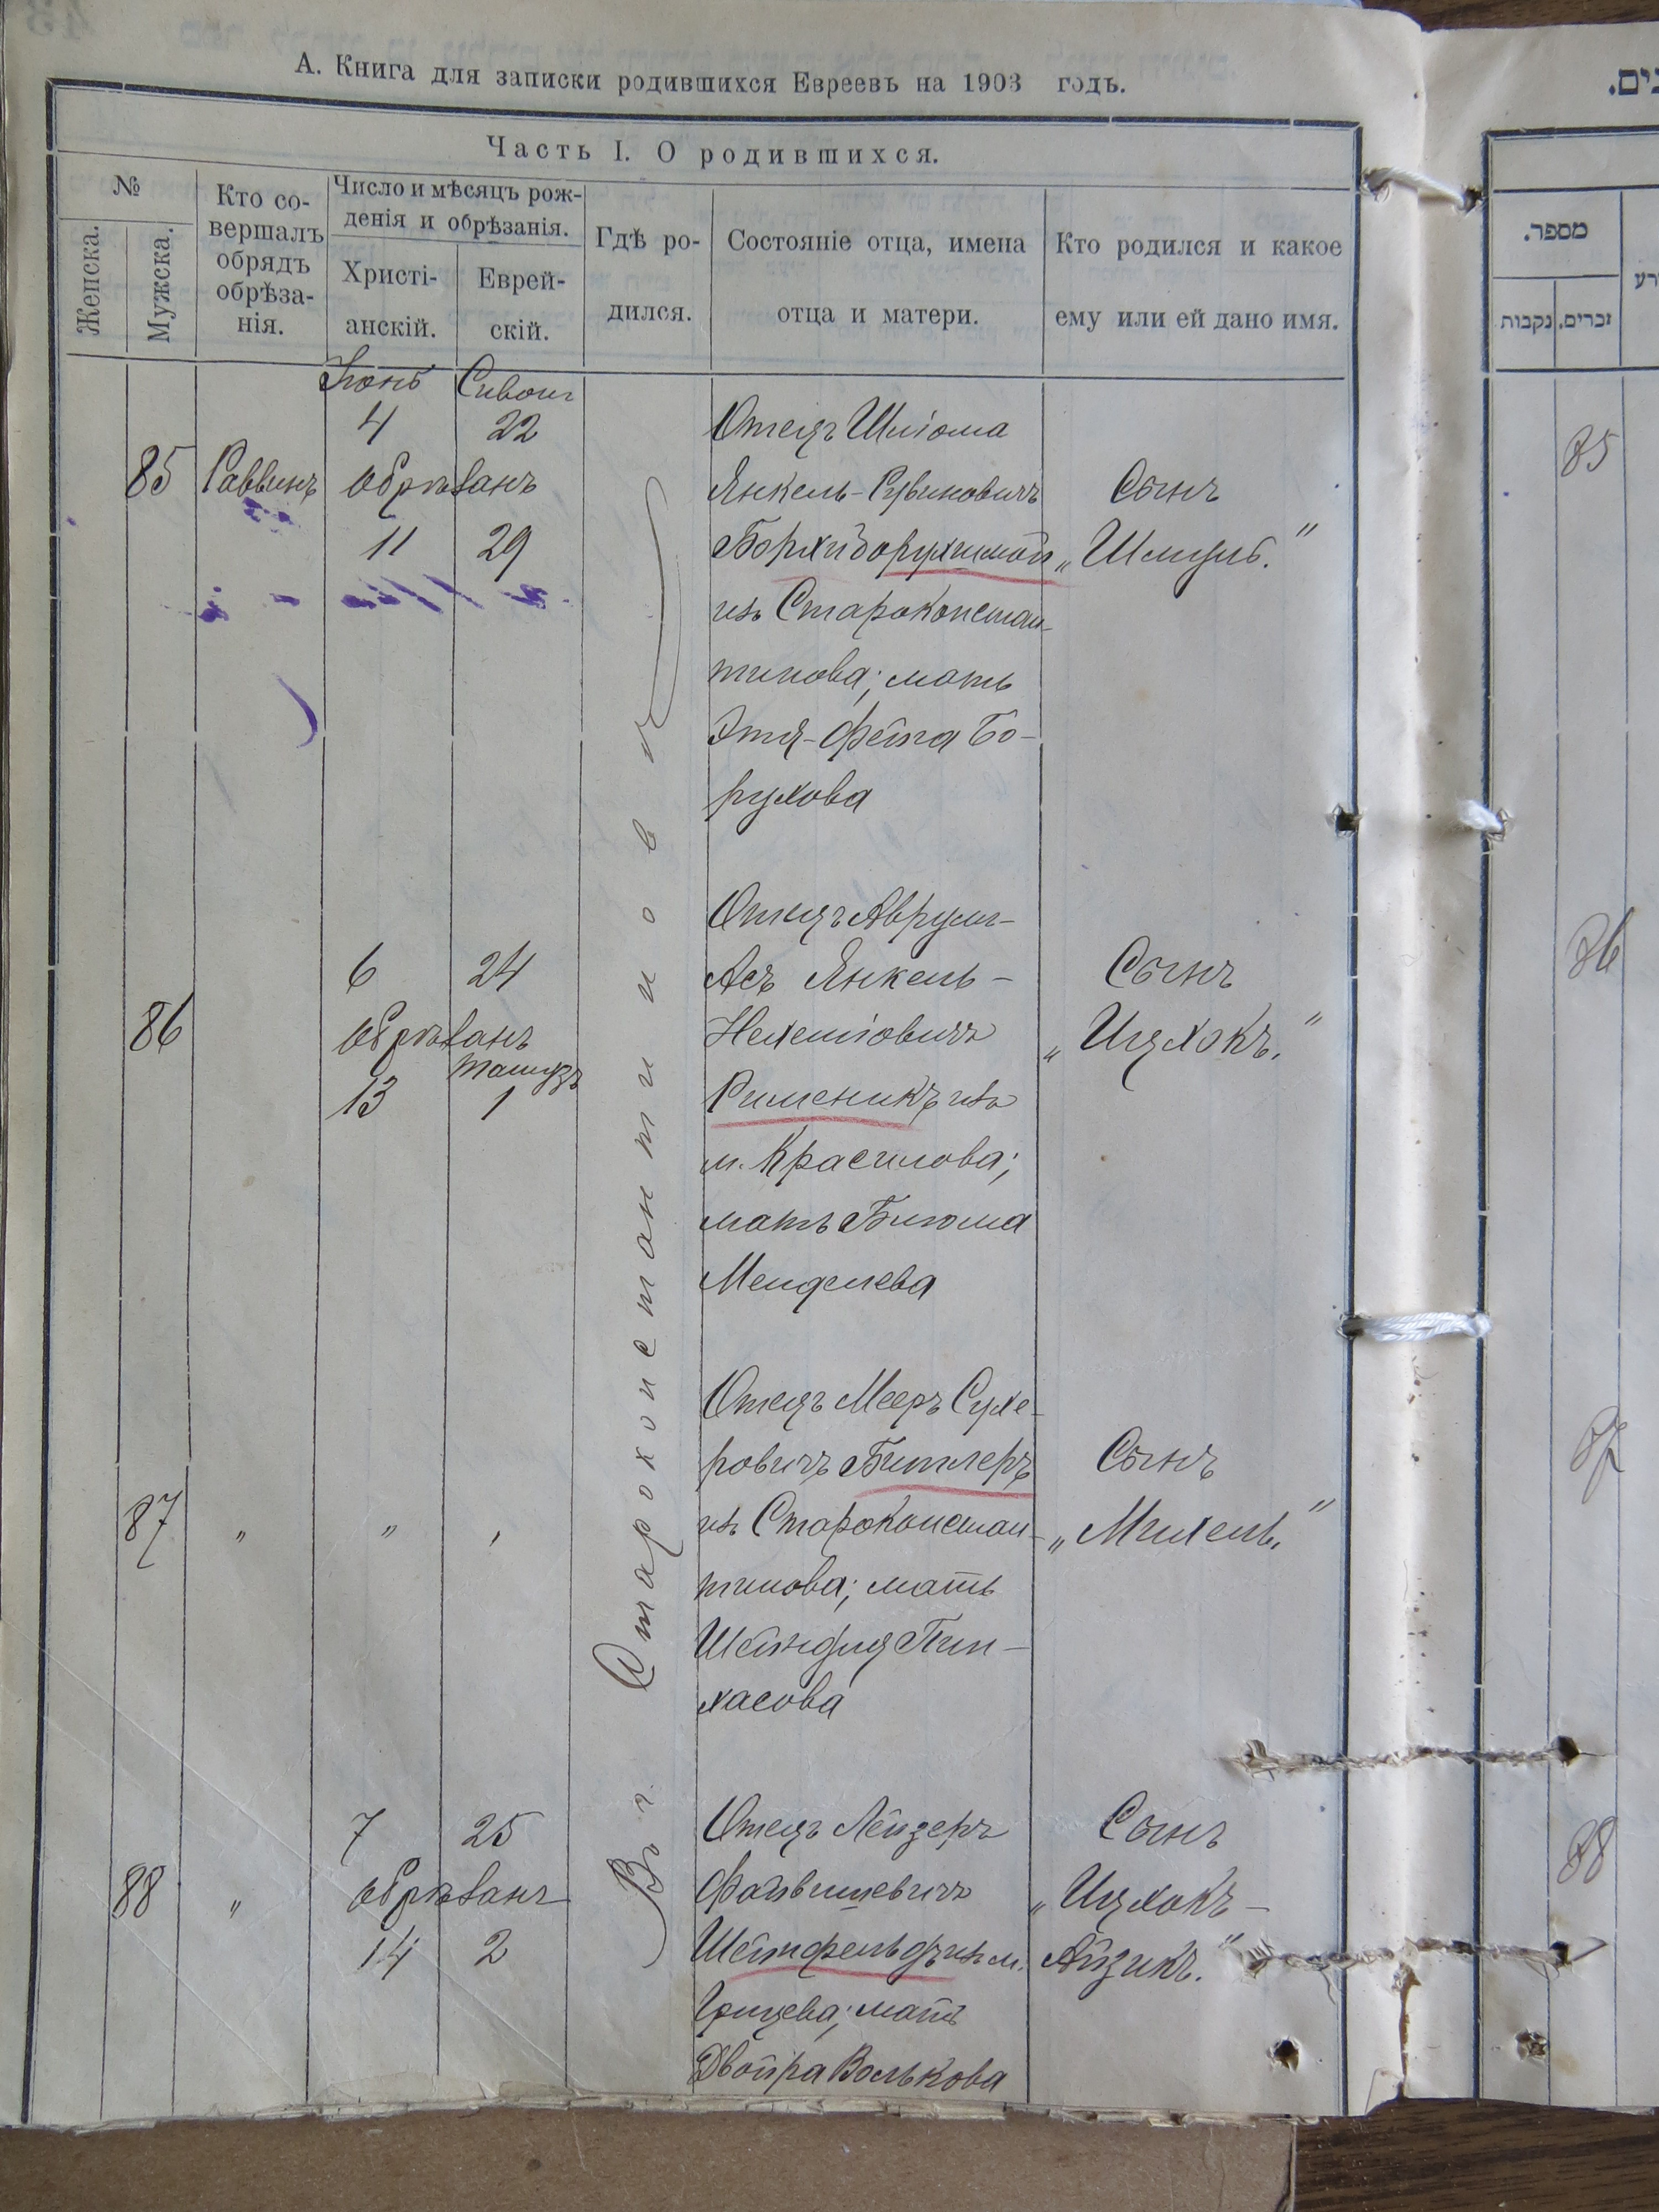 А. Книга для записки родившихся Евреевъ на 1903 годъ.
Часть I. О родившихся.
№
Женска.
Мужска.
Кто со-
вершалъ
обрядъ
обрѣза-
нія.
Число и мѣсяцъ рож-
денія и обрѣзанія.
Христі-
анскій.
Еврей-
скій.
Гдѣ ро-
дился.
Состояніе отца, имена
отца и матери.
Кто родился и какое
ему или ей дано имя.
Въ г. Староконстантиновѣ
Іюнь Сивонъ
4 22
85 Раввинъ обрѣзанъ
11 29
Отецъ Шліома
Янкель-Рувиновичъ
из Староконстан-
тинова; мать
Этя-Фейга Бо-
рухова
Сынъ
„Шмуль."
6 24
86 обрѣзанъ
Тамузъ
13 1
Отецъ Аврумъ-
Асъ Янкель-
Нехеміовичъ
Рименикъ изъ
м. Красилова;
мать Блюма
Менделева
Сынъ
„Ицхокъ."
87 " " "
Отецъ Мееръ Сухе-
ровичъ Битлеръ
изъ Староконстан-
тинова; мать
Шейндля Пин-
хасова
Сынъ
„Михель."
7 25
88 " обрѣзанъ
14 2
Отецъ Лейзеръ
Файвишевичъ
Шейнфельдъ изъ м.
Грицева; мать
Двойра Волькова
Сынъ
„Ицхокъ-
Айзикъ."
מספר.
זכרים.
נקבות
85
86
87
88